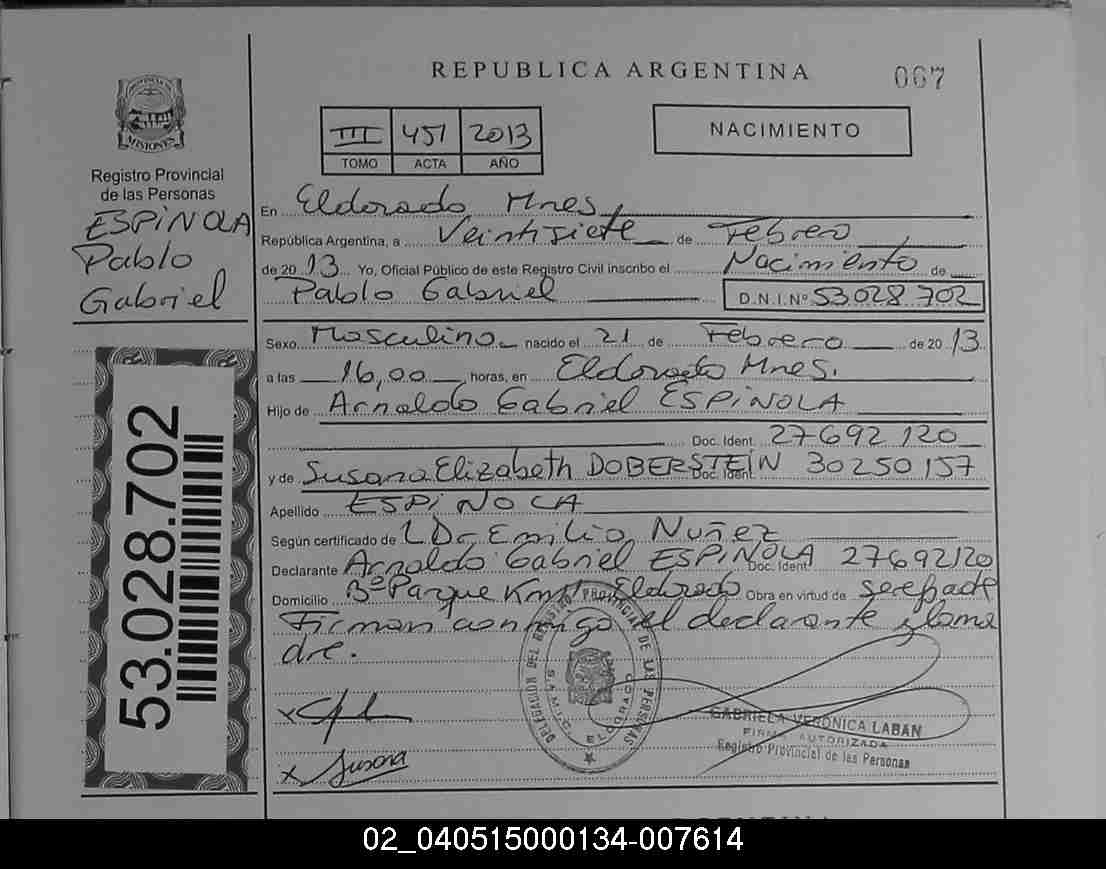 REPUBLICA ARGENTINA
067
PROVINCIA DE
MISIONES
Registro Provincial
de las Personas
ESPINOLA
Pablo
Gabriel
53.028.702
III 451 2013
TOMO ACTA AÑO
NACIMIENTO
En Eldorado Mnes,
República Argentina, a Veintisiete de Febrero
de 20 13 Yo, Oficial Público de este Registro Civil inscribo el Nacimiento de
Pablo Gabriel D.N.I.Nº 53028.702
Sexo Masculino nacido el 21 de Febrero de 20 13
a las 16,00 horas, en Eldorado Mnes.
Hijo de Arnaldo Gabriel ESPINOLA
Doc. Ident. 27692120
y de Susana Elizabeth DOBERSTEIN Doc. Ident. 30250157
Apellido ESPINOLA
Según certificado de LD- Emilio Nuñez
Declarante Arnaldo Gabriel ESPINOLA Doc. Ident. 27692120
Domicilio Bº Parque Eldorado Obra en virtud de ser el padre
Firman conmigo el declarante y la ma
dre.
x
x Susana
DELEGACION DEL REGISTRO PROVINCIAL DE LAS PERSONAS
ELDORADO
GABRIELA VERONICA LABAN
FIRMA AUTORIZADA
Registro Provincial de las Personas
02_040515000134-007614